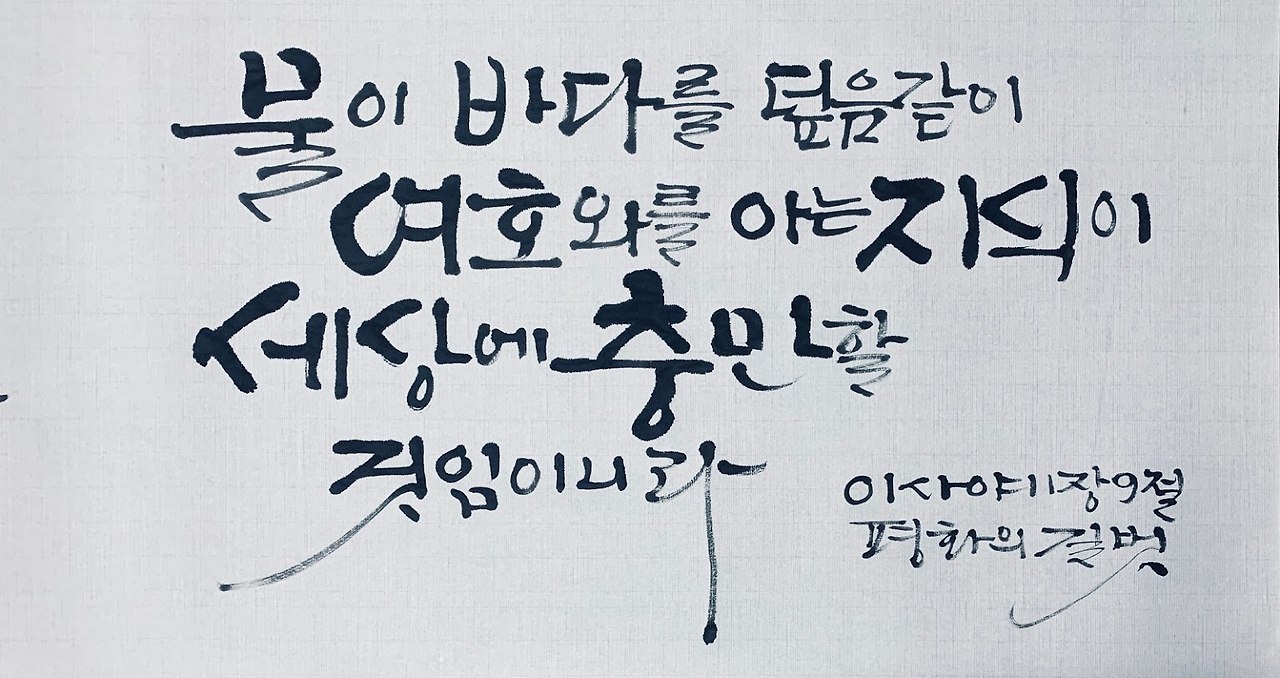 물이 바다를 덮음같이
여호와를 아는 지식이
세상에 충만할
것임이니라
이사야11장9절
평화의 길벗